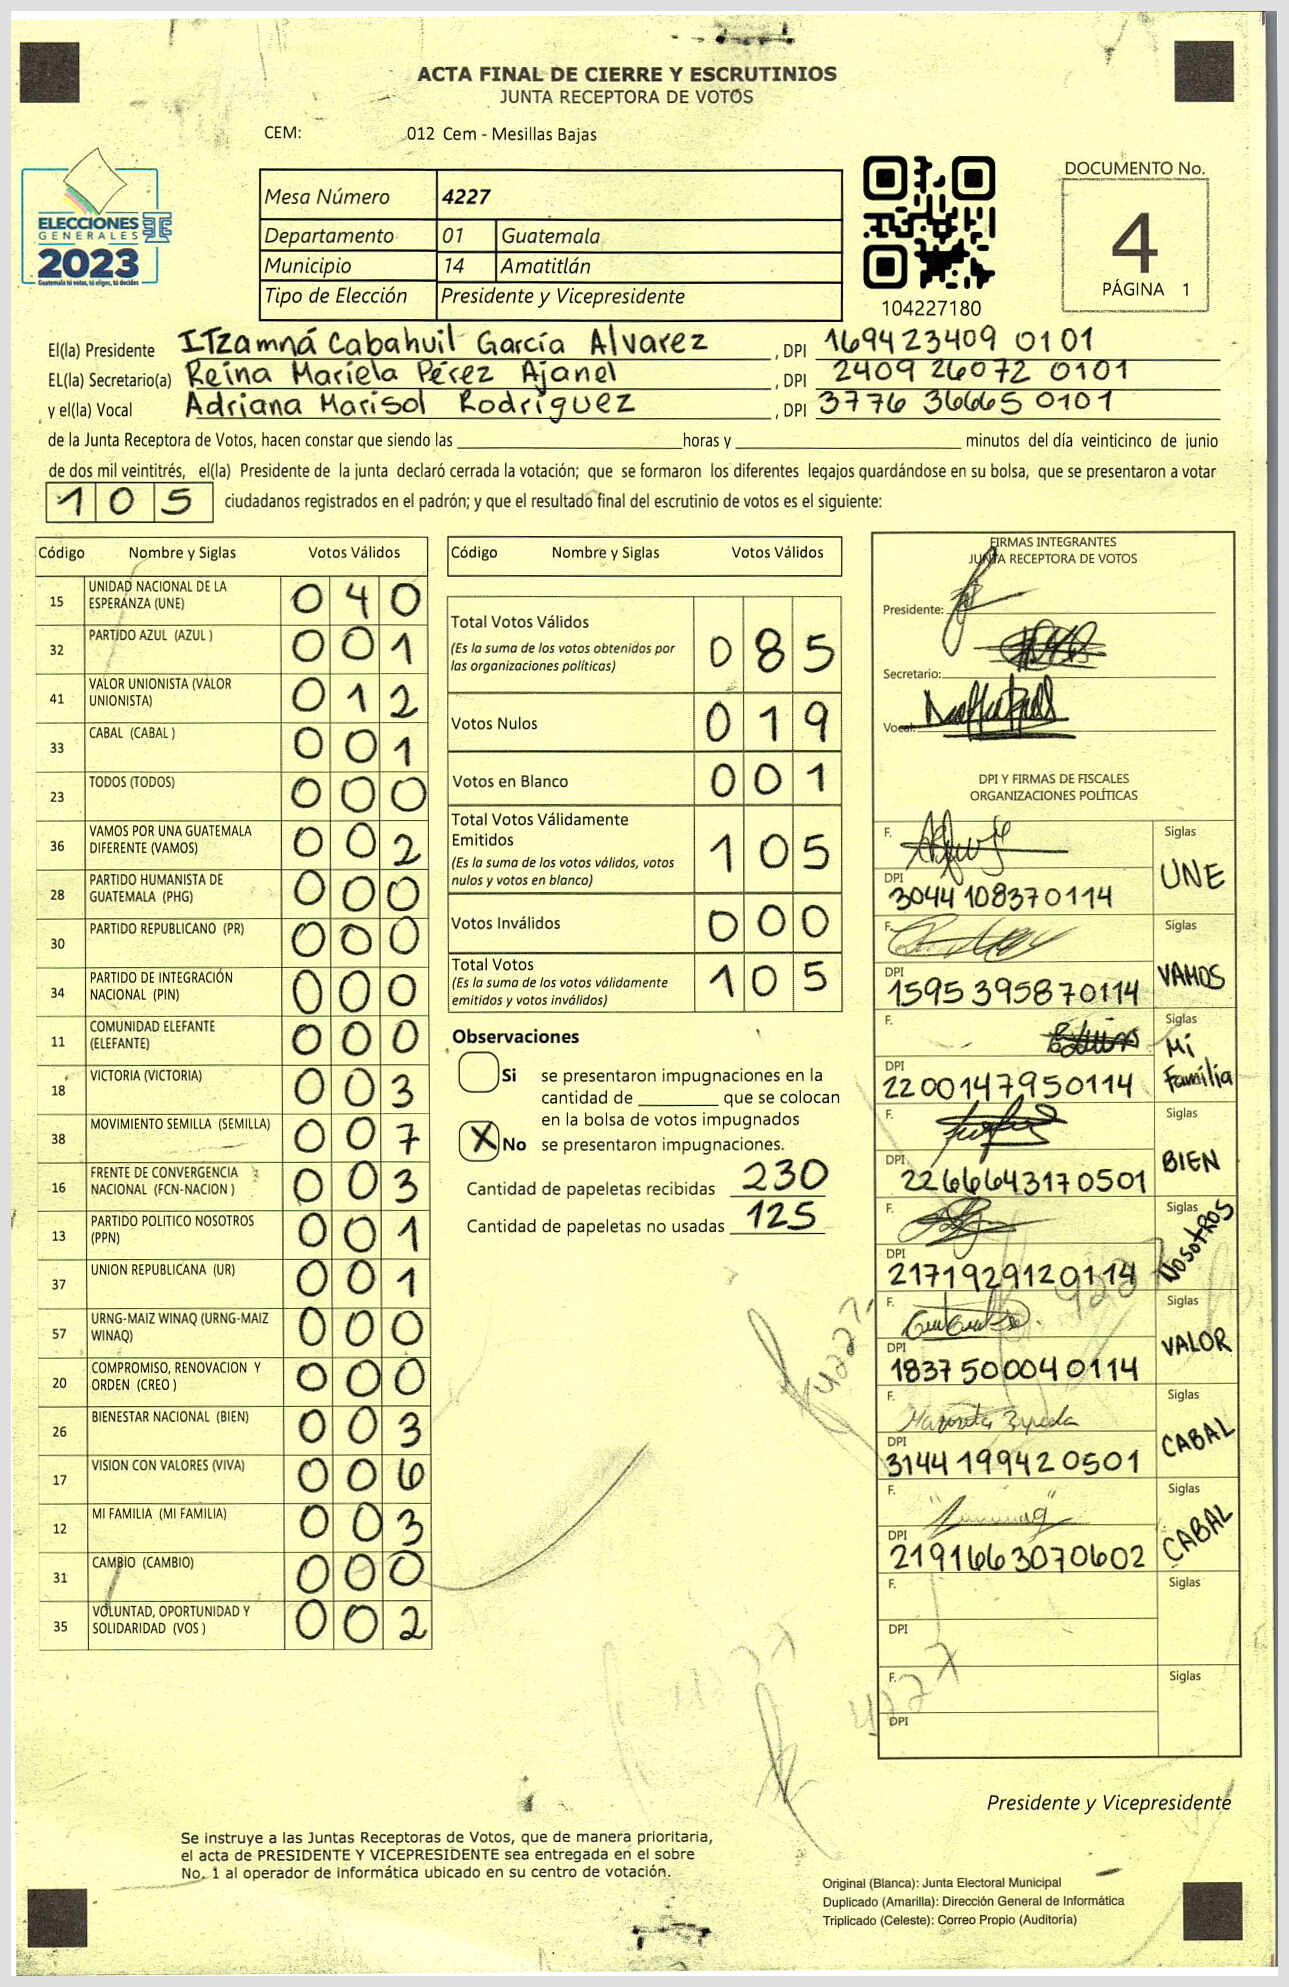 ACTA FINAL DE CIERRE Y ESCRUTINIOS
JUNTA RECEPTORA DE VOTOS
CEM: 012 Cem - Mesillas Bajas
ELECCIONES
GENERALES
2023
Guatemala tú votas, tú eliges, tú decides
Mesa Número 4227
Departamento 01 Guatemala
Municipio 14 Amatitlán
Tipo de Elección Presidente y Vicepresidente
104227180
DOCUMENTO No.
4
PÁGINA 1
El(la) Presidente ITzamná Cabahuil García Alvarez , DPI 169423409 0101
EL(la) Secretario(a) Reina Mariela Pérez Ajanel , DPI 2409 26072 0101
y el(la) Vocal Adriana Marisol Rodríguez , DPI 3776 36665 0101
de la Junta Receptora de Votos, hacen constar que siendo las horas y minutos del día veinticinco de junio
de dos mil veintitrés, el(la) Presidente de la junta declaró cerrada la votación; que se formaron los diferentes legajos guardándose en su bolsa, que se presentaron a votar
105 ciudadanos registrados en el padrón; y que el resultado final del escrutinio de votos es el siguiente:
Código Nombre y Siglas Votos Válidos
15 UNIDAD NACIONAL DE LA ESPERANZA (UNE) 040
32 PARTIDO AZUL (AZUL ) 001
41 VALOR UNIONISTA (VALOR UNIONISTA) 012
33 CABAL (CABAL ) 001
23 TODOS (TODOS) 000
36 VAMOS POR UNA GUATEMALA DIFERENTE (VAMOS) 002
28 PARTIDO HUMANISTA DE GUATEMALA (PHG) 000
30 PARTIDO REPUBLICANO (PR) 000
34 PARTIDO DE INTEGRACIÓN NACIONAL (PIN) 000
11 COMUNIDAD ELEFANTE (ELEFANTE) 000
18 VICTORIA (VICTORIA) 003
38 MOVIMIENTO SEMILLA (SEMILLA) 007
16 FRENTE DE CONVERGENCIA NACIONAL (FCN-NACION ) 003
13 PARTIDO POLITICO NOSOTROS (PPN) 001
37 UNION REPUBLICANA (UR) 001
57 URNG-MAIZ WINAQ (URNG-MAIZ WINAQ) 000
20 COMPROMISO, RENOVACION Y ORDEN (CREO ) 000
26 BIENESTAR NACIONAL (BIEN) 003
17 VISION CON VALORES (VIVA) 006
12 MI FAMILIA (MI FAMILIA) 003
31 CAMBIO (CAMBIO) 000
35 VOLUNTAD, OPORTUNIDAD Y SOLIDARIDAD (VOS ) 002
Código Nombre y Siglas Votos Válidos
Total Votos Válidos 085
(Es la suma de los votos obtenidos por
las organizaciones políticas)
Votos Nulos 019
Votos en Blanco 001
Total Votos Válidamente
Emitidos 105
(Es la suma de los votos válidos, votos
nulos y votos en blanco)
Votos Inválidos 000
Total Votos 105
(Es la suma de los votos válidamente
emitidos y votos inválidos)
Observaciones
Si se presentaron impugnaciones en la
cantidad de que se colocan
en la bolsa de votos impugnados
X No se presentaron impugnaciones.
Cantidad de papeletas recibidas 230
Cantidad de papeletas no usadas 125
FIRMAS INTEGRANTES
JUNTA RECEPTORA DE VOTOS
Presidente:
Secretario:
Vocal:
DPI Y FIRMAS DE FISCALES
ORGANIZACIONES POLÍTICAS
F. Siglas
DPI 3044 108370114 UNE
F. Siglas
DPI 1595 395870114 VAMOS
F. Siglas
DPI 2200147950114 Mi Familia
F. Siglas
DPI 2266643170501 BIEN
F. Siglas
DPI 2171929120114 NOSOTROS
F. Siglas
DPI 1837 500040114 VALOR
F. Siglas
DPI 3144 199420501 CABAL
F. Siglas
DPI 2191663070602 CABAL
F. Siglas
DPI
F. Siglas
DPI
4227
Presidente y Vicepresidente
Se instruye a las Juntas Receptoras de Votos, que de manera prioritaria,
el acta de PRESIDENTE Y VICEPRESIDENTE sea entregada en el sobre
No. 1 al operador de informática ubicado en su centro de votación.
Original (Blanca): Junta Electoral Municipal
Duplicado (Amarilla): Dirección General de Informática
Triplicado (Celeste): Correo Propio (Auditoría)